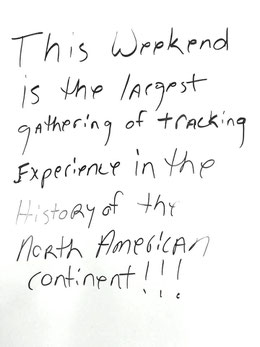 This Weekend
is the largest
gathering of tracking
Experience in the
History of the
North American
continent!!!